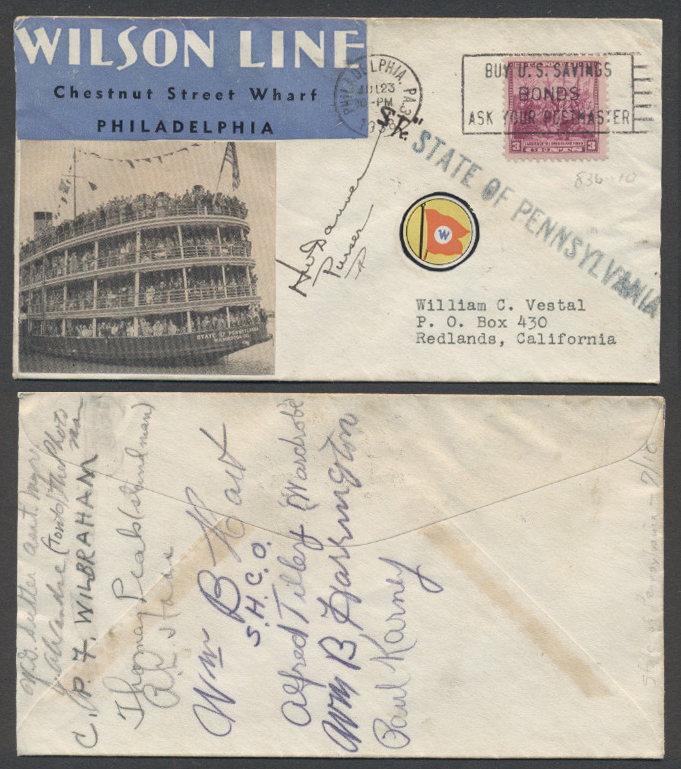 WILSON LINE
Chestnut Street Wharf
PHILADELPHIA
PHILADELPHIA, PA.
JUL 23
PM
BUY U.S. SAVINGS
BONDS
ASK YOUR POSTMASTER
3 CENTS 3
836-10
STR.
"STATE OF PENNSYLVANIA
Purser
W
STATE OF PENNSYLVANIA
William C. Vestal
P. O. Box 430
Redlands, California
asst. mgr.
(Tonto) the Photo
man
C. P. F. WILBRAHAM
Thomas Peals (standman)
Wm B Hart
S.H.C.O.
Alfred Tilley (Wardrobe)
Wm B. Harrington
Paul Karney
State of Pennsylvania - 9/10